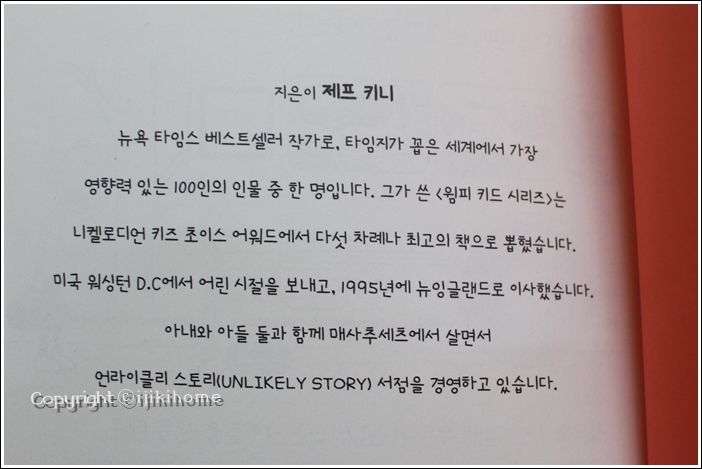 지은이 제프 키니
뉴욕 타임스 베스트셀러 작가로, 타임지가 꼽은 세계에서 가장
영향력 있는 100인의 인물 중 한 명입니다. 그가 쓴 〈윔피 키드 시리즈〉는
니켈로디언 키즈 초이스 어워드에서 다섯 차례나 최고의 책으로 뽑혔습니다.
미국 워싱턴 D.C에서 어린 시절을 보내고, 1995년에 뉴잉글랜드로 이사했습니다.
아내와 아들 둘과 함께 매사추세츠에서 살면서
언라이클리 스토리(UNLIKELY STORY) 서점을 경영하고 있습니다.
Copyright ⓒijikihome